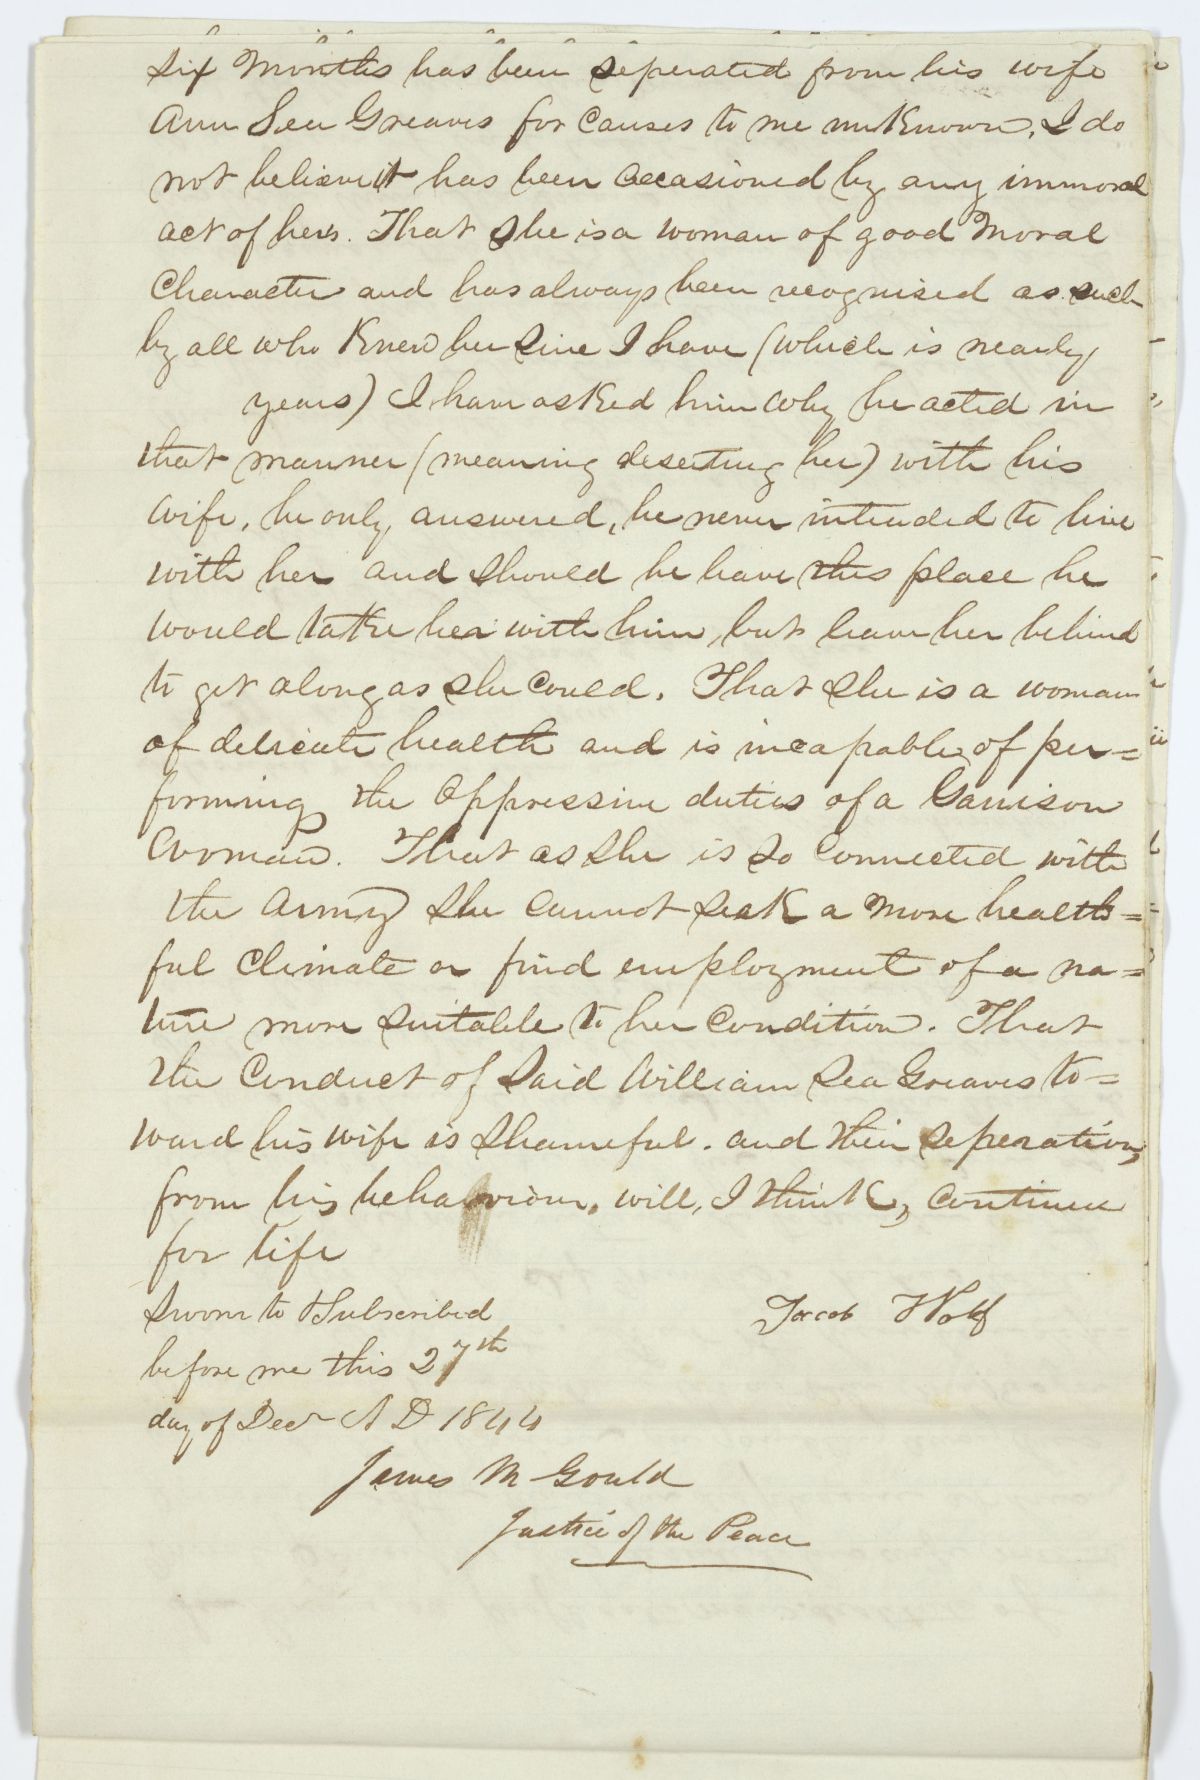 Six Months has been seperated from his wife
Ann Sea Greaves for Causes to me unKnown, I do
not believe it has been occasioned by any immoral
act of hers. That She is a woman of good Moral
Character and has always been recognised as such
by all who Knew her Sinc I have (which is nearly
years) I have asked him why he acted in
that manner (meaning deserting her) with his
wife, he only answered, he never intended to live
with her and should he leave this place he
would take her with him, but leave her behind
to get along as she Could. That she is a woman
of delicate health and is incapable of per=
forming the Oppressive duties of a Garrison
Woman. That as she is So Connected with
the Army She Cannot Seek a More health=
ful Climate or find employment of a na=
ture more Suitable to her Condition. That
the Conduct of Said William Sea Greaves to=
ward his wife is Shameful. and their seperation,
from his behaviour, will, I think, Continue
for life
Sworn to & Subscribed
Jacob Wolf
before me this 27th
day of Decr A D 1844
James M Gould
Justice of the Peace